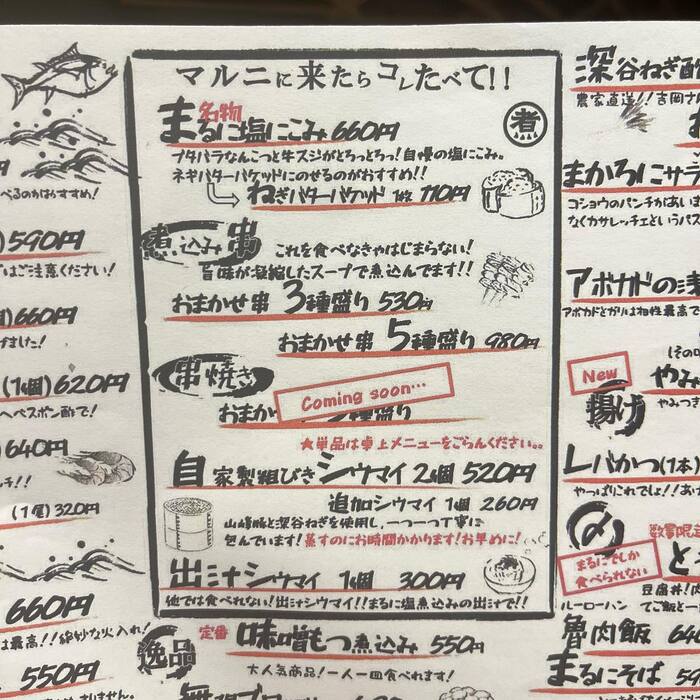 マルニに来たらコレたべて!!
名物
まるに塩にこみ 660円
煮
ブタバラなんこっと牛スジがとろっとろっ!自慢の塩にこみ。
ネギバターバケットにのせるのがおすすめ!!
ねぎバターバケット 1枚 110円
煮込み串
これを食べなきゃはじまらない!
旨味が凝縮したスープで煮込んでます!!
おまかせ串 3種盛り 530円
おまかせ串 5種盛り 980円
串焼き
Coming soon…
おまか 種盛り
★単品は卓上メニューをごらんください。。
自家製粗びきシウマイ 2個 520円
追加シウマイ 1個 260円
山峰豚と深谷ねぎを使用し、一つ一つ丁寧に
包んでいます!蒸すのにお時間かかります!お早めに!
出汁シウマイ 1個 300円
他では食べれない!出汁シウマイ!!まるに塩煮込みの出汁で!!
逸品
定番 味噌もつ煮込み 550円
大人気商品!一人一皿食べれます!
べるのがおすすめ!
590円
はご注意ください!
660円
げました!
(1個)620円
へべスポン酢で!
640円
(1尾)320円
660円
は最高!!絶妙な火入れ!
550円
深谷ねぎ酢
農家直送!!吉岡さん
まかろにサラ
コショウのパンチがあいま
なくカサレッチェというパス
アボカドの浅
アボカドとガリは相性最高で
New
やみ
やみつき
揚げ
レバかつ(1本)
やっぱりこれでしょ!!あ
〆
数量限定
まるにでしか
食べられない
豆腐丼!肉
ルーローハン
てご飯と一
魯肉飯 64
まるにそば 54